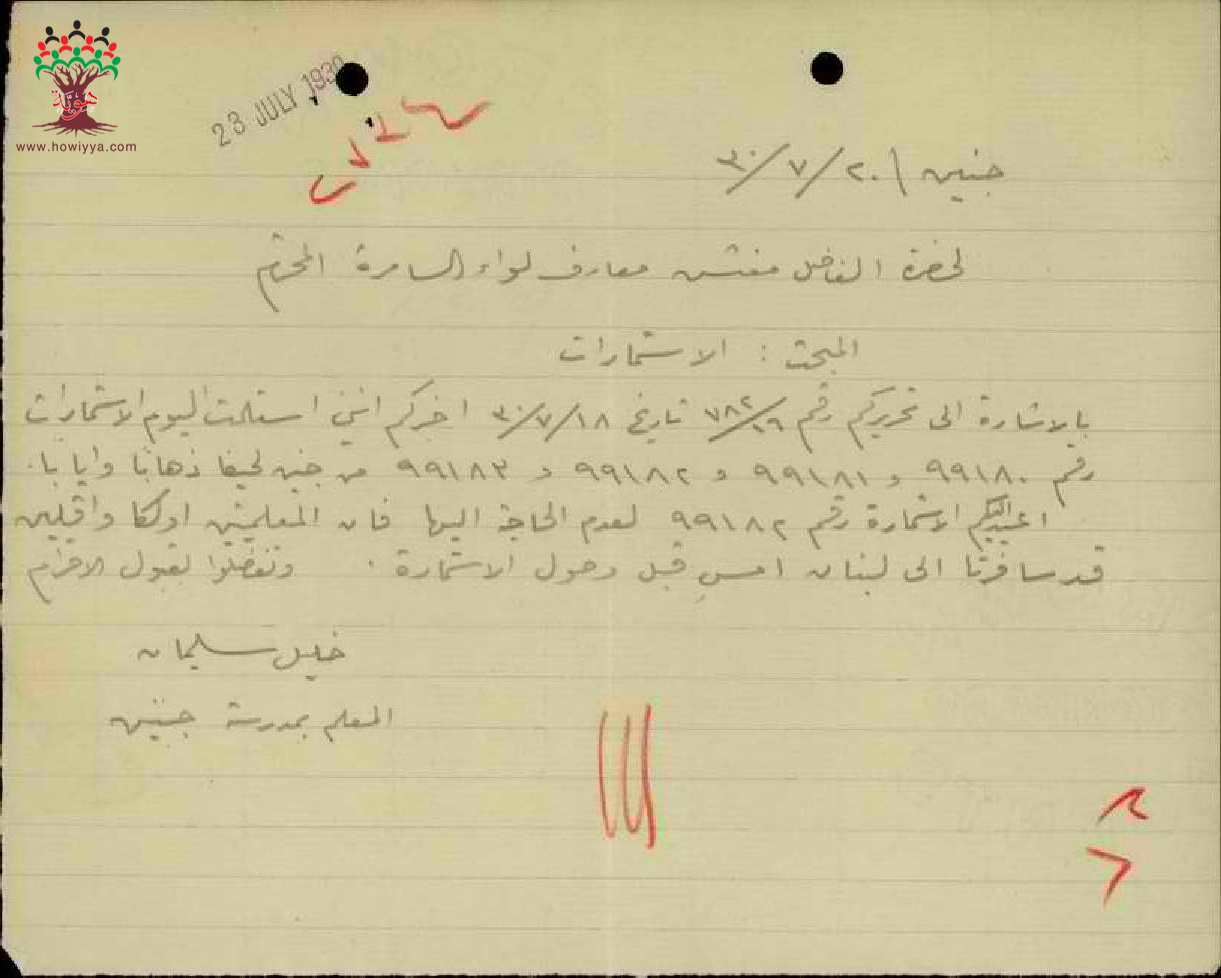 هوية
www.howiyya.com
23 JULY 1930
جنين ٢٠/٧/٣٠
لحضرة الفاضل مفتش معارف لواء السامرة المحترم
المبحث : الاستمارات
بالاشارة الى تحريركم رقم تاريخ ١٨/٧/٣٠ اخبركم انني استلمت اليوم الاستمارات
رقم ٩٩١٨٠ و ٩٩١٨١ و ٩٩١٨٢ و ٩٩١٨٣ من جنين لحيفا ذهابا وايابا.
اعيد اليكم الاستمارة رقم ٩٩١٨٢ لعدم الحاجة اليها فان المعلمتين اولكا
قد سافرتا الى لبنان امس قبل وصول الاستمارة . وتفضلوا بقبول الاحترام
خليل سليمان
المعلم بمدرسة جنين